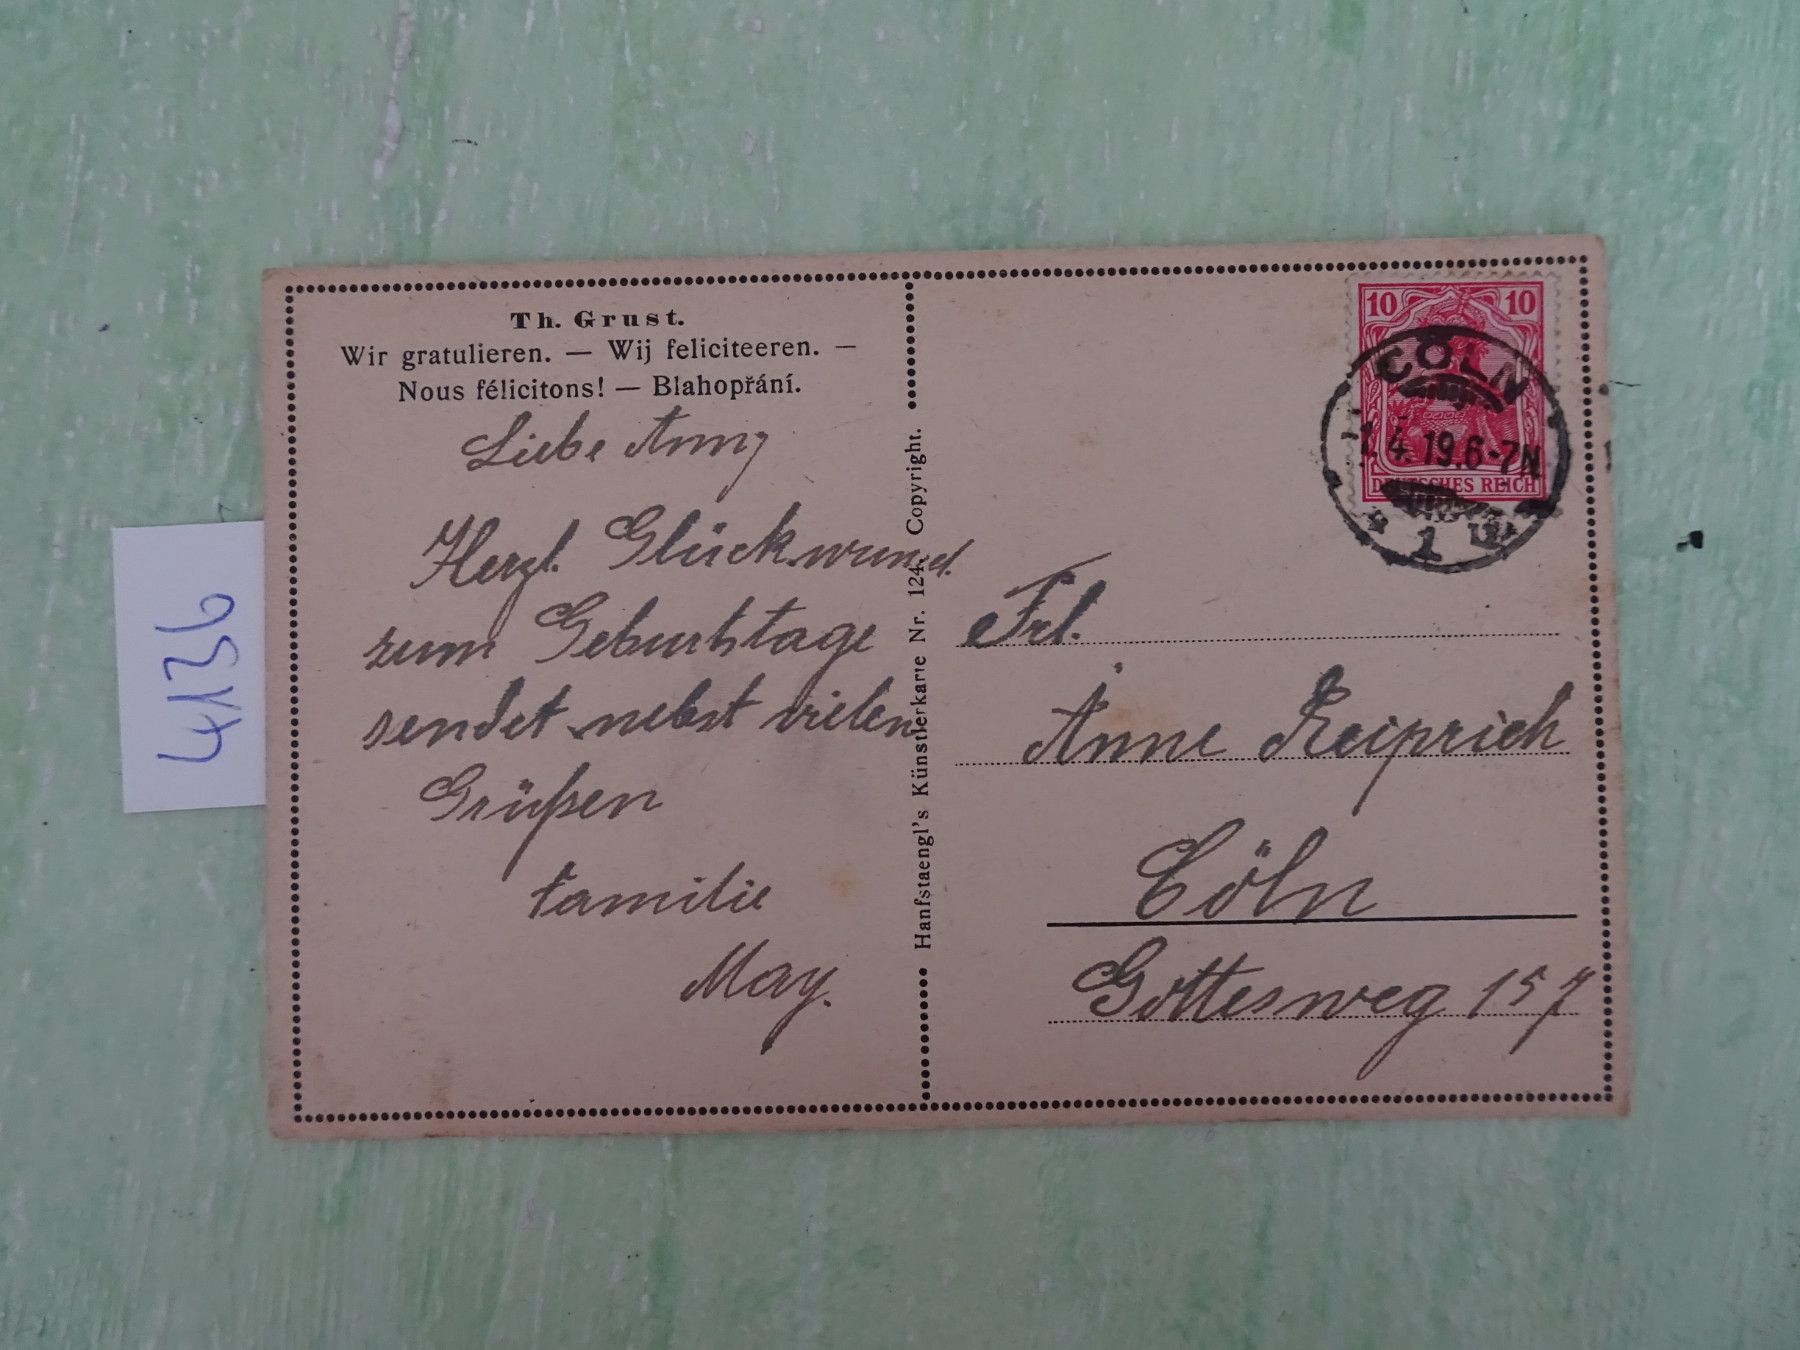 Th. Grust.
Wir gratulieren. — Wij feliciteeren. —
Nous félicitons! — Blahopřání.
Liebe Anny
Herzl. Glückwunsch.
zum Geburtstage
sendet nebst vielen
Grüßen
Familie
May.
Hanfstaengl's Künstlerkarte Nr. 124. Copyright.
10 10
DEUTSCHES REICH
CÖLN
1.4.19.6-7N
1
Frl.
Änne Reiprich
Cöln
Gottesweg 157
4136